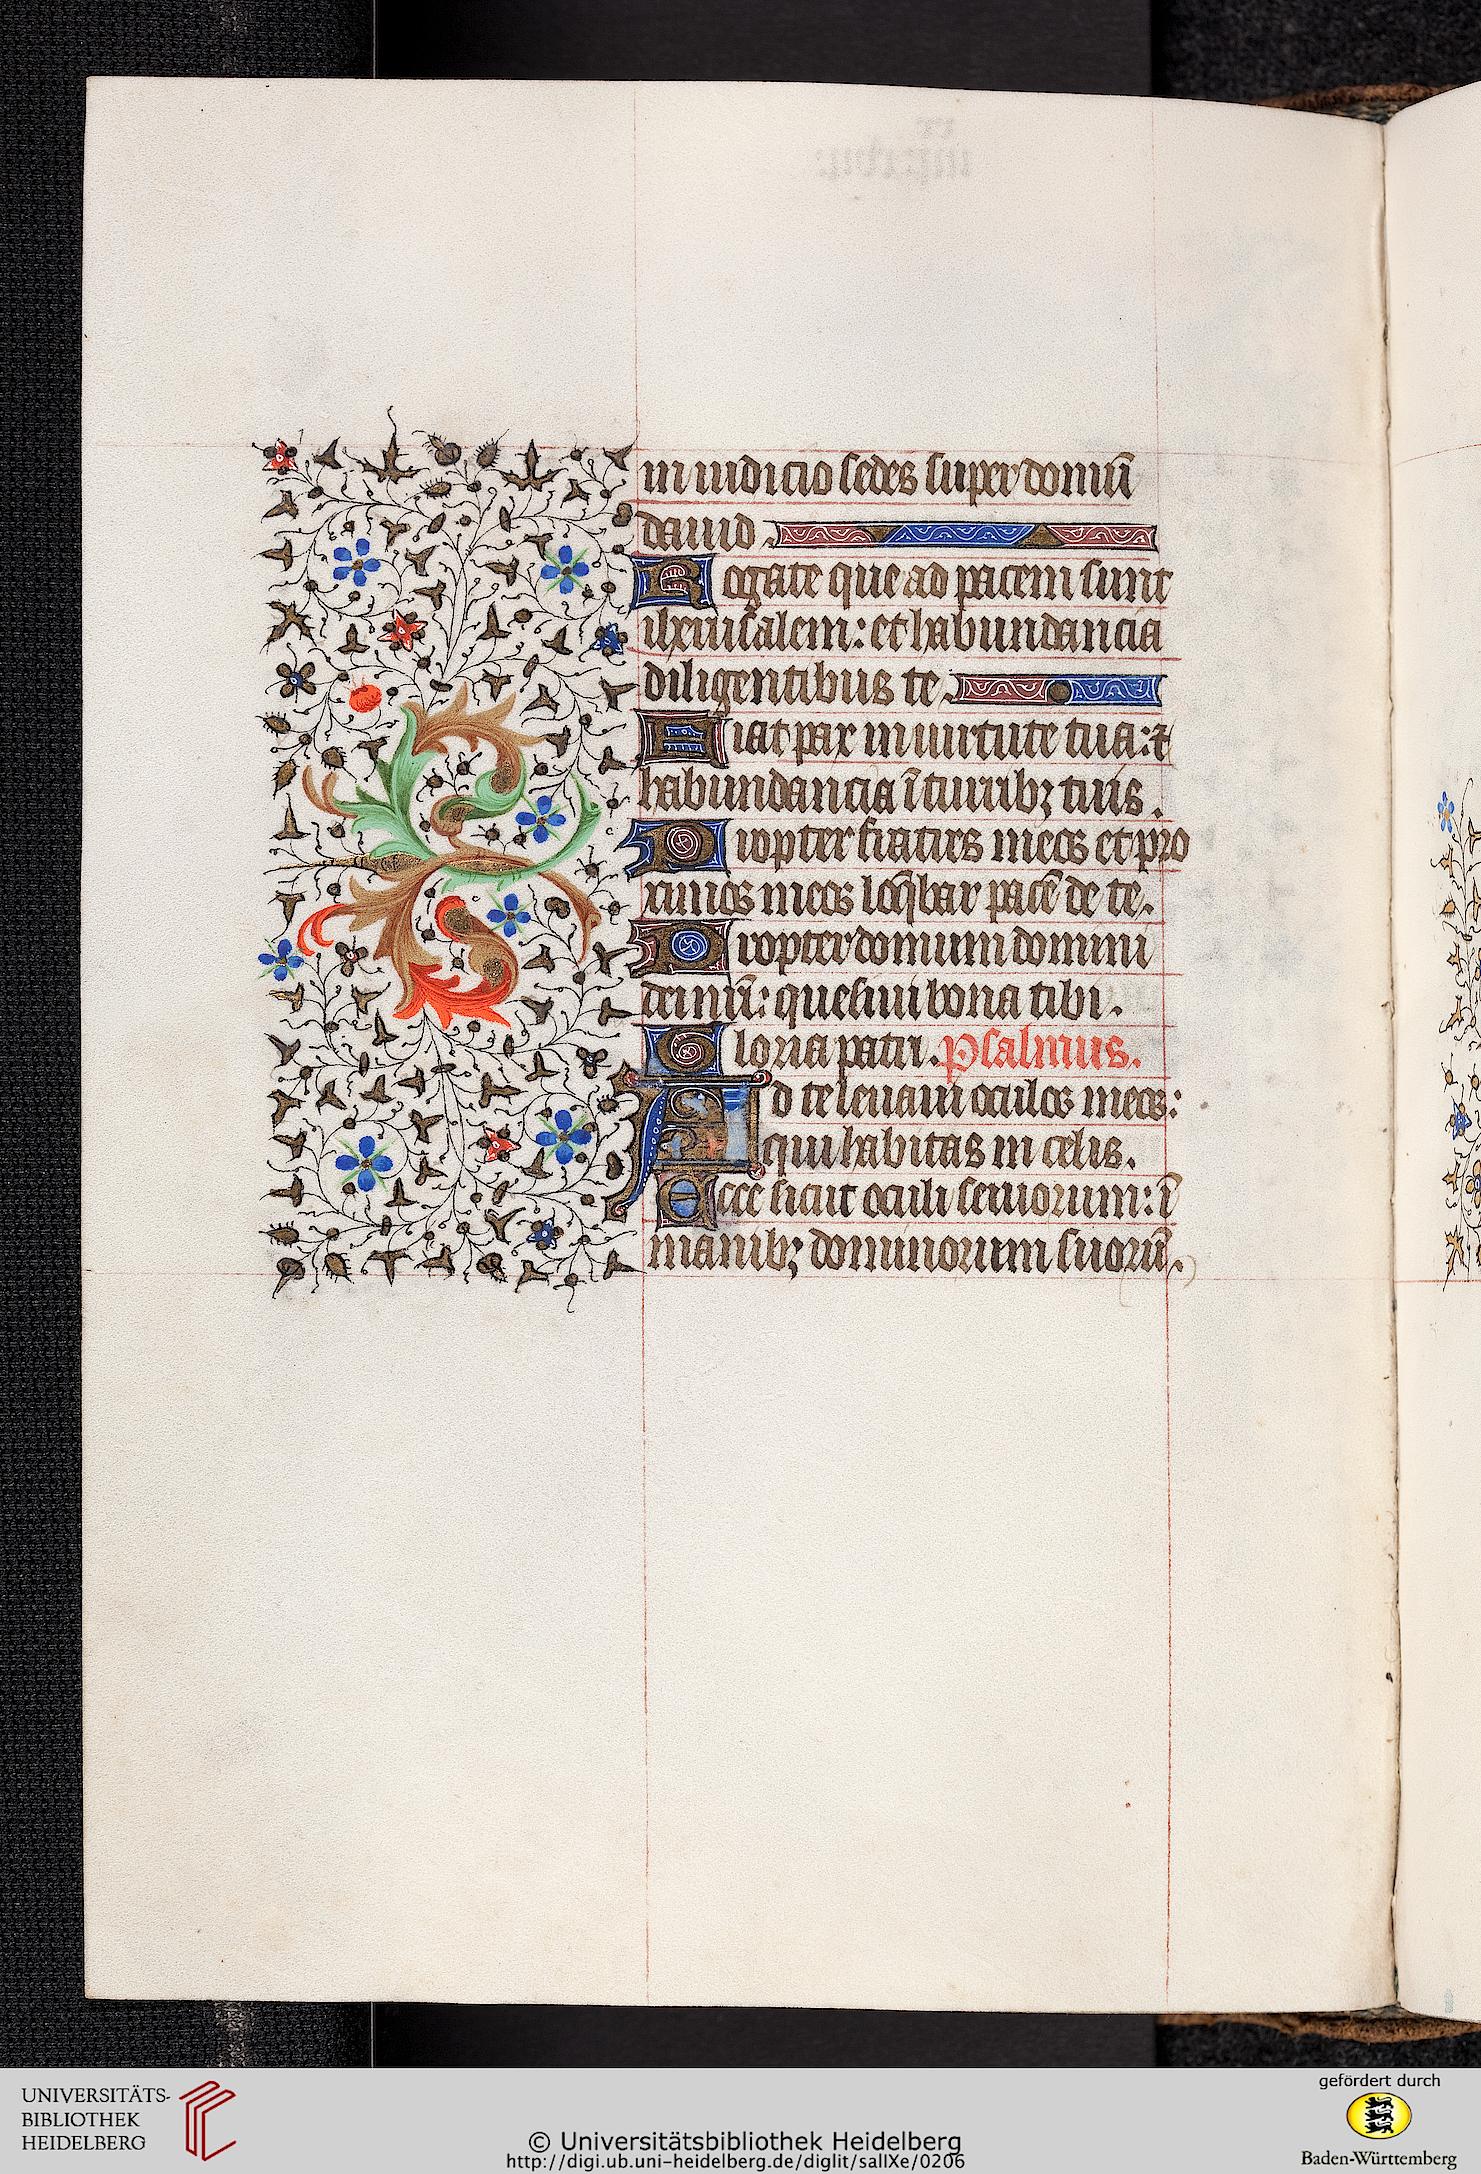 in iudicio sedes super domū
dauid.
Rogate que ad pacem sunt
iherusalem: et habundancia
diligentibus te.
Fiat pax in uirtute tua: ⁊
habundancia ī turribꝫ tuis.
Propter fratres meos et pro
ximos meos loq̄bar pacē de te.
Propter domum domini
dei nr̄i: quesiui bona tibi.
Gloria patri. Psalmus.
Ad te leuaui oculos meos:
qui habitas in celis.
Ecce sicut oculi seruorum: ī
manibꝫ dominorum suorū.
UNIVERSITÄTS-
BIBLIOTHEK
HEIDELBERG
© Universitätsbibliothek Heidelberg
http://digi.ub.uni-heidelberg.de/diglit/salIXe/0206
gefördert durch
Baden-Württemberg